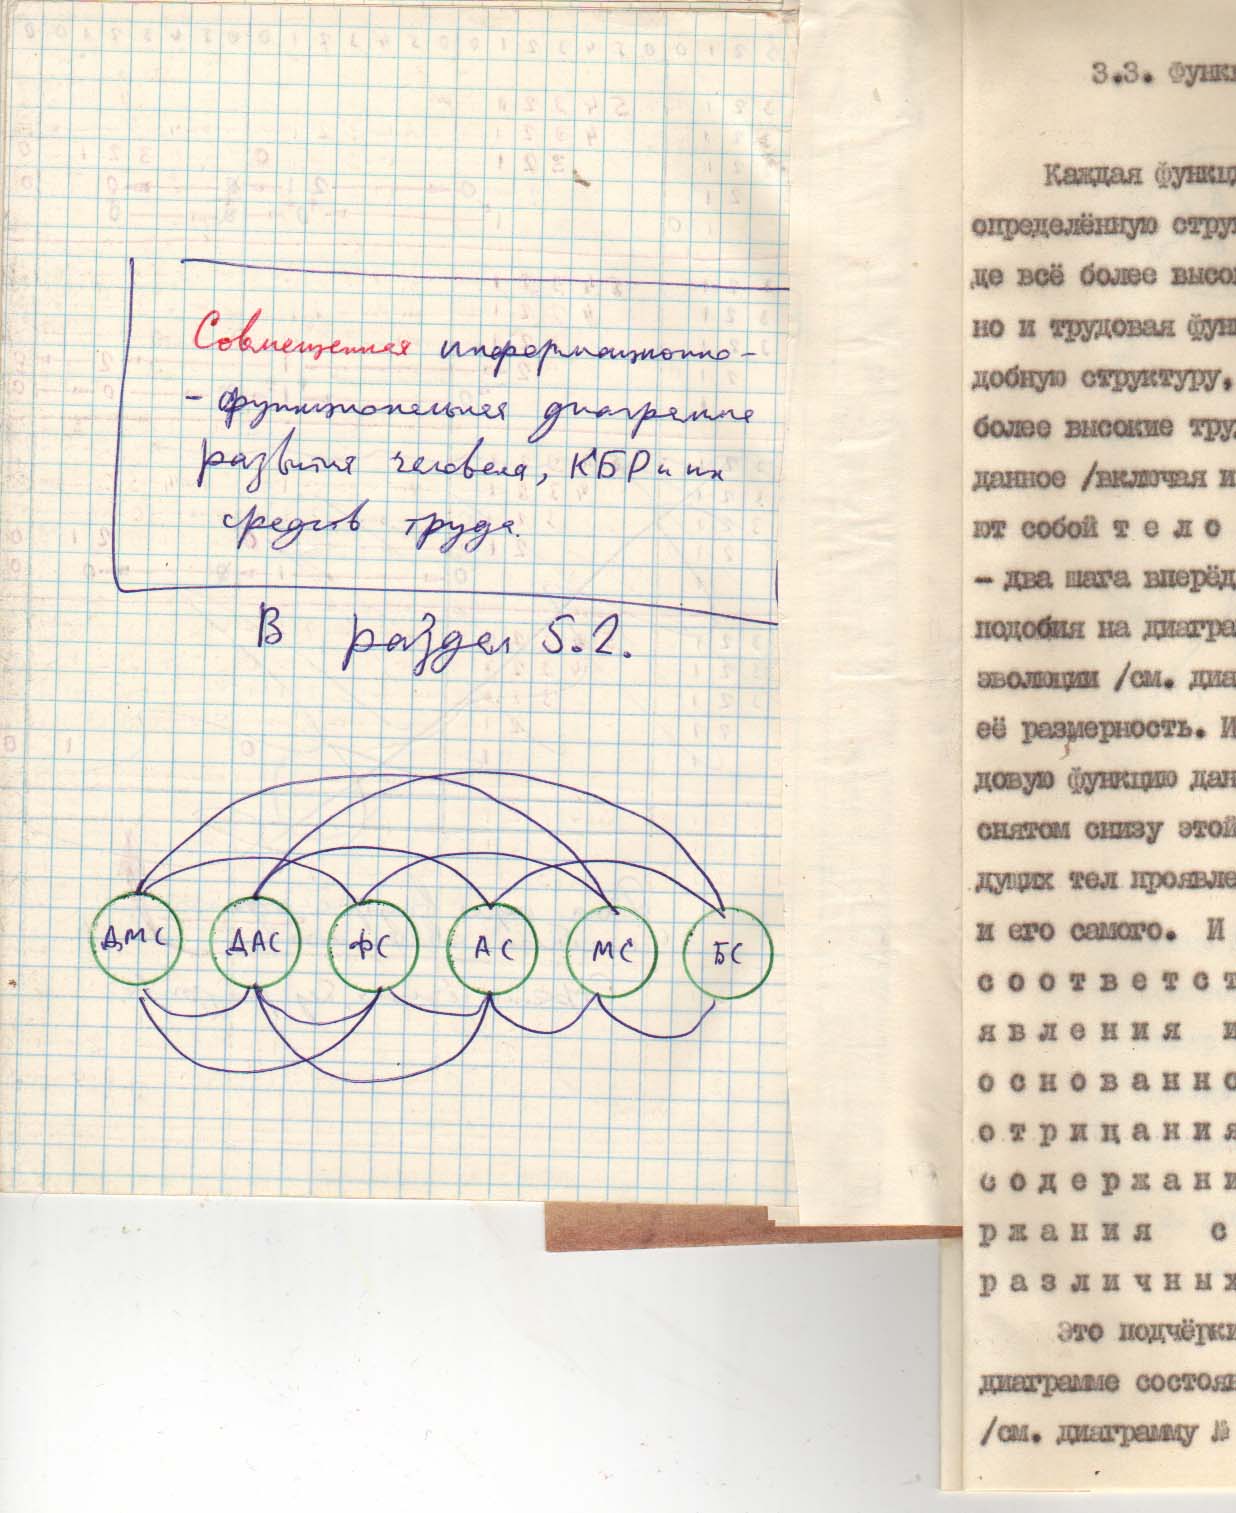 Совмещенная информационно-
- функциональная диаграмма
развития человека, КБР и их
средств труда.
В раздел 5.2.
ДМС ДАС ФС АС МС БС
3.3. Функ
Каждая функц
определённую стру
де всё более высо
но и трудовая фун
добную структуру,
более высокие тру
данное /включая и
ют собой т е л о
- два шага вперёд
подобия на диагра
эволюции /см. диа
её размерность. И
довую функцию дан
снятом снизу этой
дущих тел проявле
и его самого. И
с о о т в е т с т
я в л е н и я и
о с н о в а н н о
о т р и ц а н и я
с о д е р ж а н и
р ж а н и я с
р а з л и ч н ы х
Это подчёрки
диаграмме состоян
/см. диаграмму №